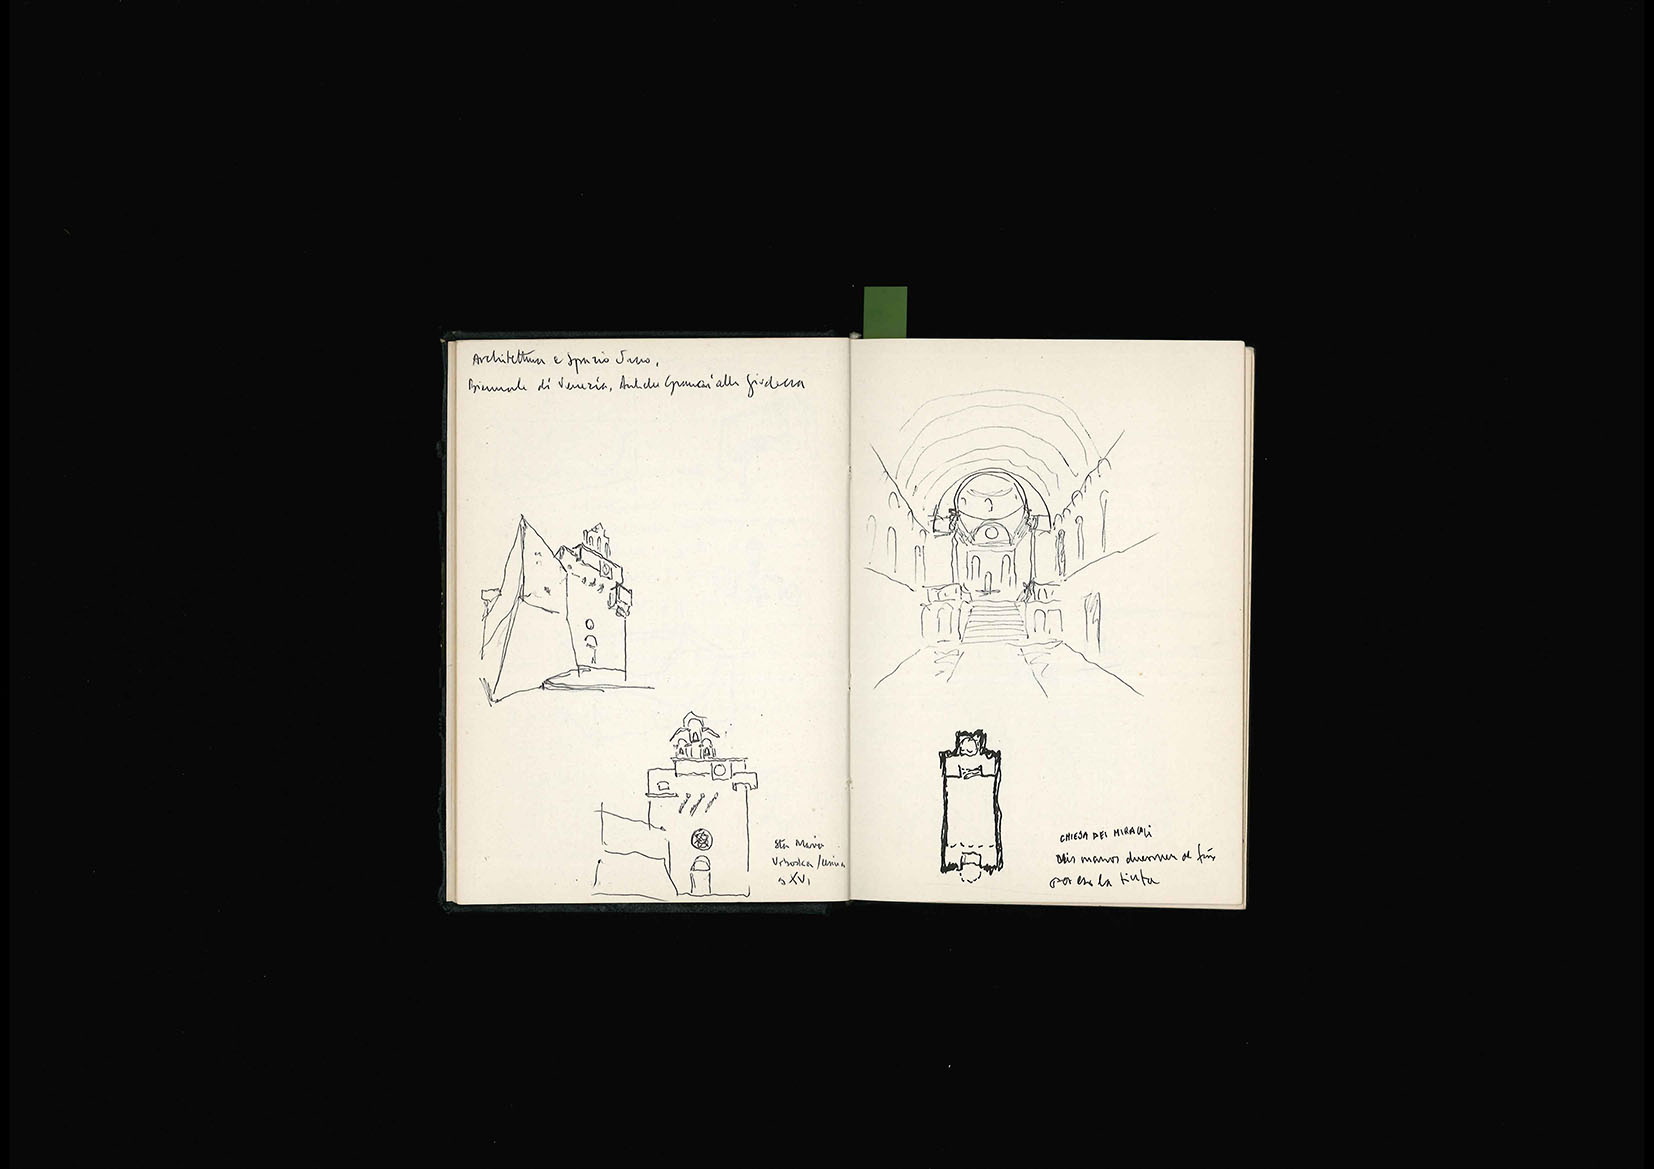 Architettura e Spazio Sacro,
Biennale di Venezia, Antichi Granai alla Giudecca
Sta Maria
Vrboska / Lesina
s XVI
CHIESA DEI MIRACOLI
Mis manos duermen de frío
por eso la tinta